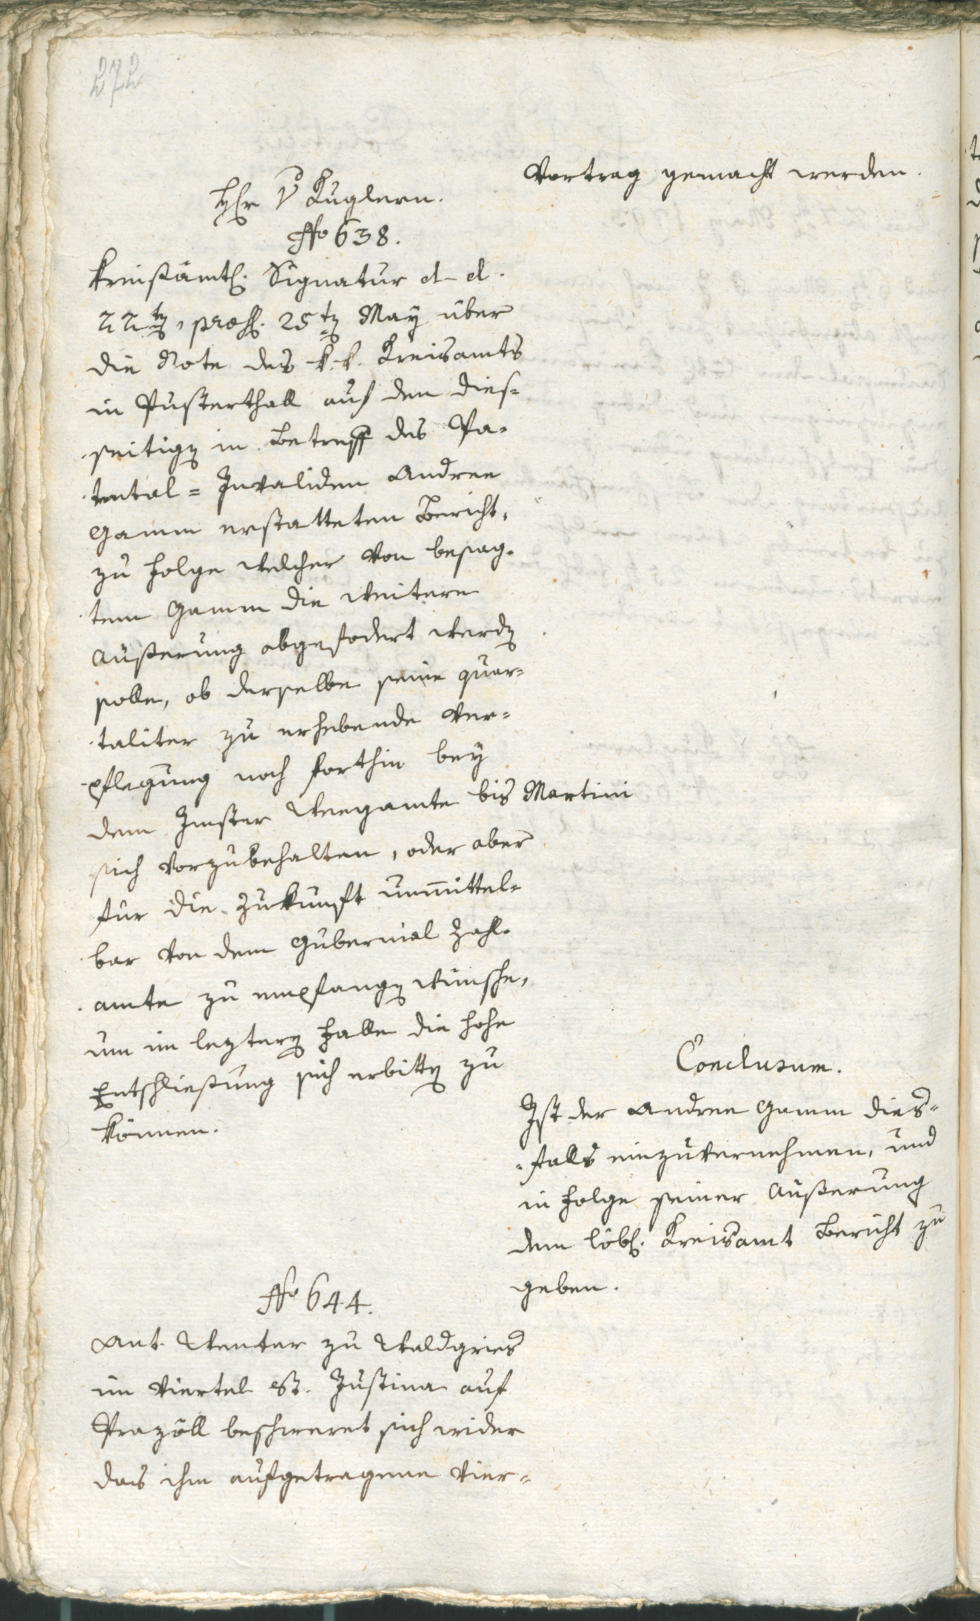 272
Vortrag gemacht werden.
Hr v Kuglern.
No 638.
Kreisämtl. Signatur d. d.
22ten, præs. 25ten May über
die Note des k. k. Kreisamts
in Pusterthall auf den dies=
seitigen in Betreff des Pa=
tental=Invaliden Andree
Gamm erstatteten Bericht,
zu Folge welcher von besag=
tem Gamm die weitere
Äußerung abgefodert werden
solle, ob derselbe seine quar=
taliter zu erhebende Ver=
pflegung noch forthin bey
dem Imster Weegamte bis Martini
sich vorzubehalten, oder aber
für die Zukunft unmittel=
bar von dem Gubernial Zahl=
amte zu empfangen wünsche,
um im leztern Falle die hohe
Entschließung sich erbitten zu
können.
Conclusum.
Ist der Andree Gamm dies=
falls einzuvernehmen, und
in Folge seiner Äußerung
dem löbl. Kreisamt Bericht zu
geben.
No 644.
Ant. Wenter zu Waldgries
im Viertel St. Justina auf
Prazöll beschweret sich wider
das ihm aufgetragene Vier=